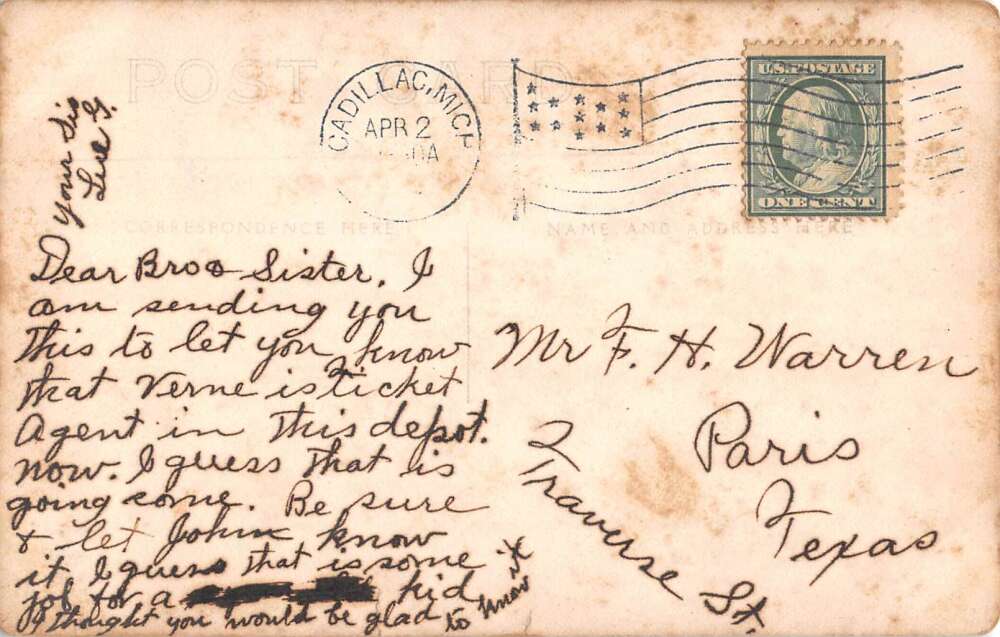 POST CARD
CADILLAC, MICH
APR 2
U.S. POSTAGE
ONE CENT
CORRESPONDENCE HERE
NAME AND ADDRESS HERE
Your Sis
Dear Bro & Sister, I
am sending you
this to let you know
that Verne is ticket
Agent in this depot.
now. I guess that is
going some. Be sure
& let John know
it I guess that is some
job for a kid
I thought you would be glad to know it
Mr F. H. Warren
Paris
Texas
Traverse St.